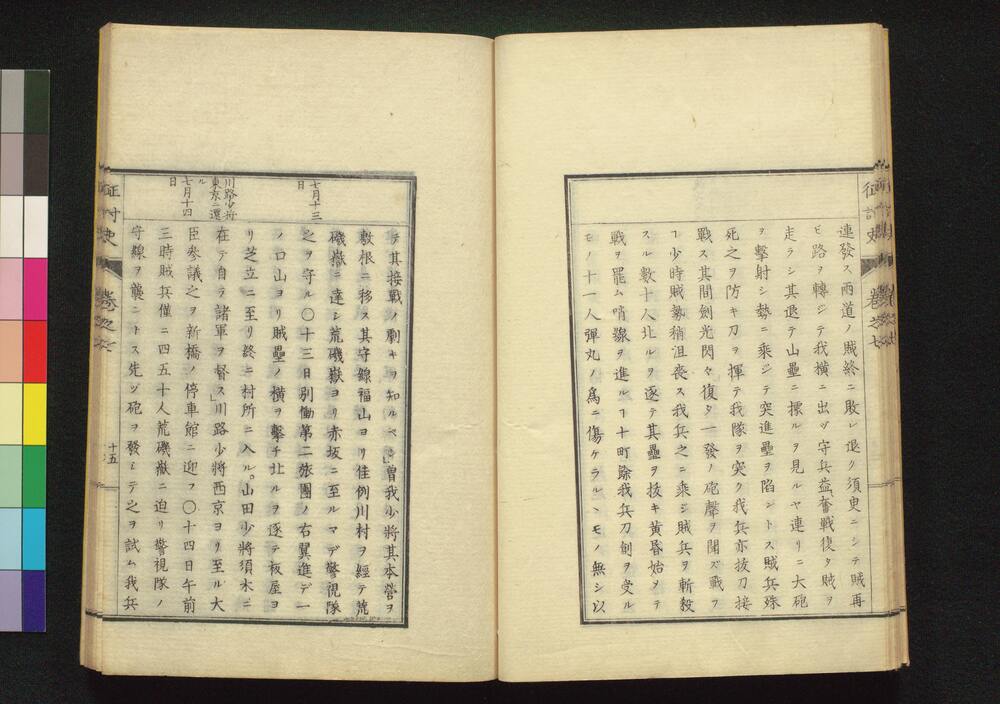 連發ス兩道ノ賊終ニ敗レ退ク須臾ニシテ賊再
ヒ路ヲ轉シテ我横ニ出ヅ守兵益奮戰復タ賊ヲ
走ラシ其退テ山壘ニ據ルヲ見ルヤ連リニ大砲
ヲ擊射シ勢ニ乘シテ突進壘ヲ陷ントス賊兵殊
死之ヲ防キ刀ヲ揮テ我隊ヲ突ク我兵亦拔刀接
戰ス其間劍光閃々復タ一發ノ砲聲ヲ聞ズ戰フ
ヿ少時賊勢稍沮喪ス我兵之ニ乘シ賊兵ヲ斬殺
スル數十人北ルヲ逐テ其壘ヲ拔キ黄昏始メテ
戰ヲ罷ム哨線ヲ進ルヿ十町餘我兵刀劍ヲ受ル
モノ十一人彈丸ノ爲ニ傷ケラルヽモノ無シ以
征討史
七月十三日
川路少將東京ニ還ル
七月十四日
テ其接戰ノ劇キヲ知ルベシ」曾我少將其本營ヲ
敷根ニ移ス其守線福山ヨリ佳例川村ヲ經テ荒
磯嶽ニ達シ荒磯嶽ヨリ赤坂ニ至ルマデ警視隊
之ヲ守ル〇十三日別働第二旅團ノ右翼進デ一
ノ口山ヨリ賊壘ノ横ヲ擊チ北ルヲ逐テ板屋ヨ
リ芝立ニ至リ終ニ村所ニ入ル。山田少將須木ニ
在テ自ラ諸軍ヲ督ス」川路少將西京ヨリ至ル大
臣參議之ヲ新橋ノ停車館ニ迎フ〇十四日午前
三時賊兵僅ニ四五十人荒磯嶽ニ迫リ警視隊ノ
守線ヲ襲ントス先ヅ砲ヲ發シテ之ヲ試ム我兵
征討史
十五